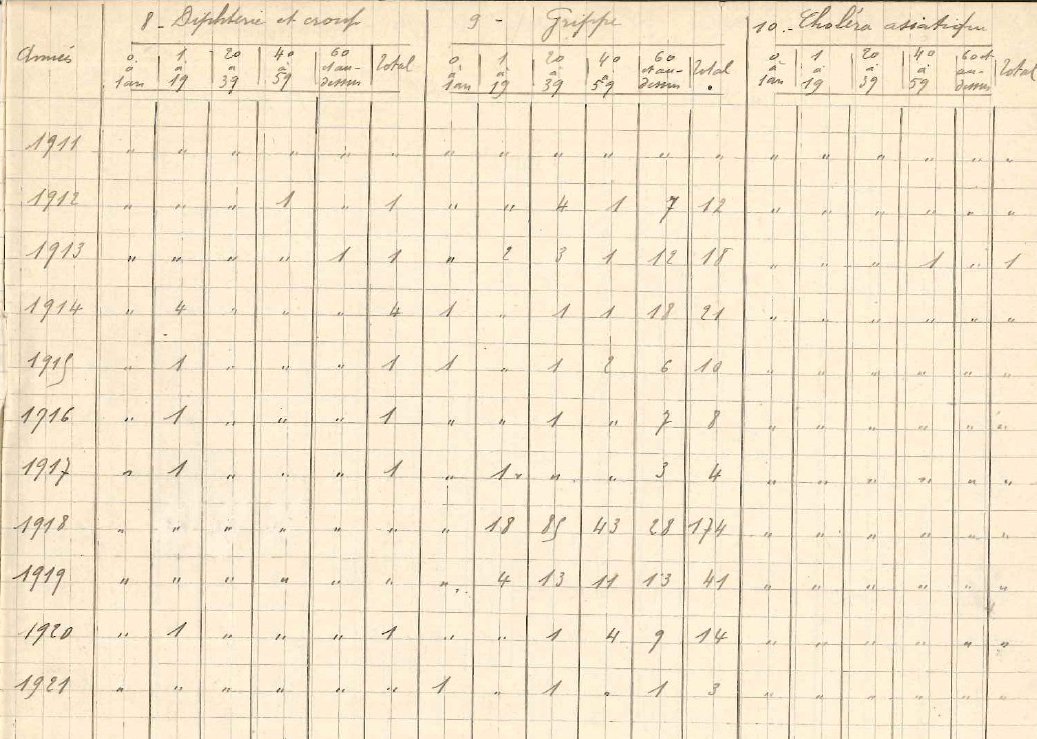 8 - Diphterie et croup 9 - Grippe 10 - Choléra asiatique
Années 0 à 1 an 1 à 19 20 à 39 40 à 59 60 et au-dessus Total 0 à 1 an 1 à 19 20 à 39 40 à 59 60 et au-dessus Total 0 à 1 an 1 à 19 20 à 39 40 à 59 60 et au-dessus Total
1911 " " " " " " " " " " " " " " " " " "
1912 " " " 1 " 1 " " 4 1 7 12 " " " " " "
1913 " " " " 1 1 " 2 3 1 12 18 " " " 1 " 1
1914 " 4 " " " 4 1 " 1 1 18 21 " " " " " "
1915 " 1 " " " 1 1 " 1 2 6 10 " " " " " "
1916 " 1 " " " 1 " " 1 " 7 8 " " " " " "
1917 " 1 " " " 1 " 1 " " 3 4 " " " " " "
1918 " " " " " " " 18 85 43 28 174 " " " " " "
1919 " " " " " " " 4 13 11 13 41 " " " " " "
1920 " 1 " " " 1 " " 1 4 9 14 " " " " " "
1921 " " " " " " 1 " 1 " 1 3 " " " " " "